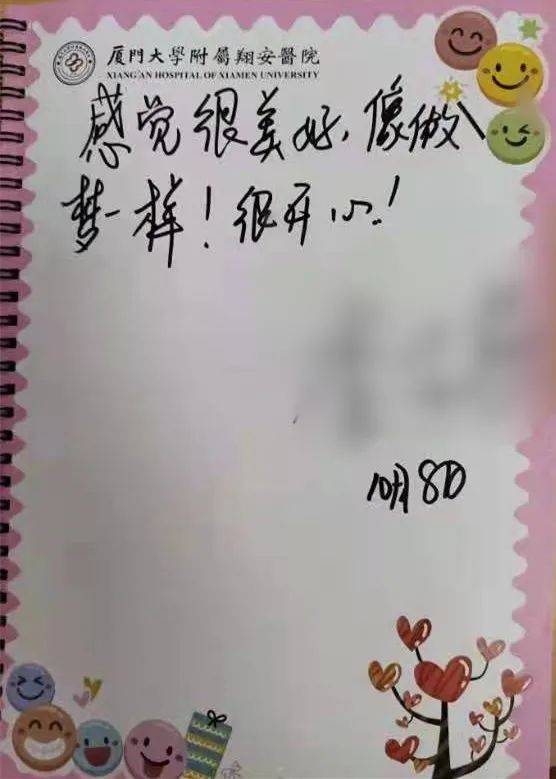 厦門大學附屬翔安醫院
XIANG'AN HOSPITAL OF XIAMEN UNIVERSITY
感觉很美好，像做
梦一样！很开心！
10月8日